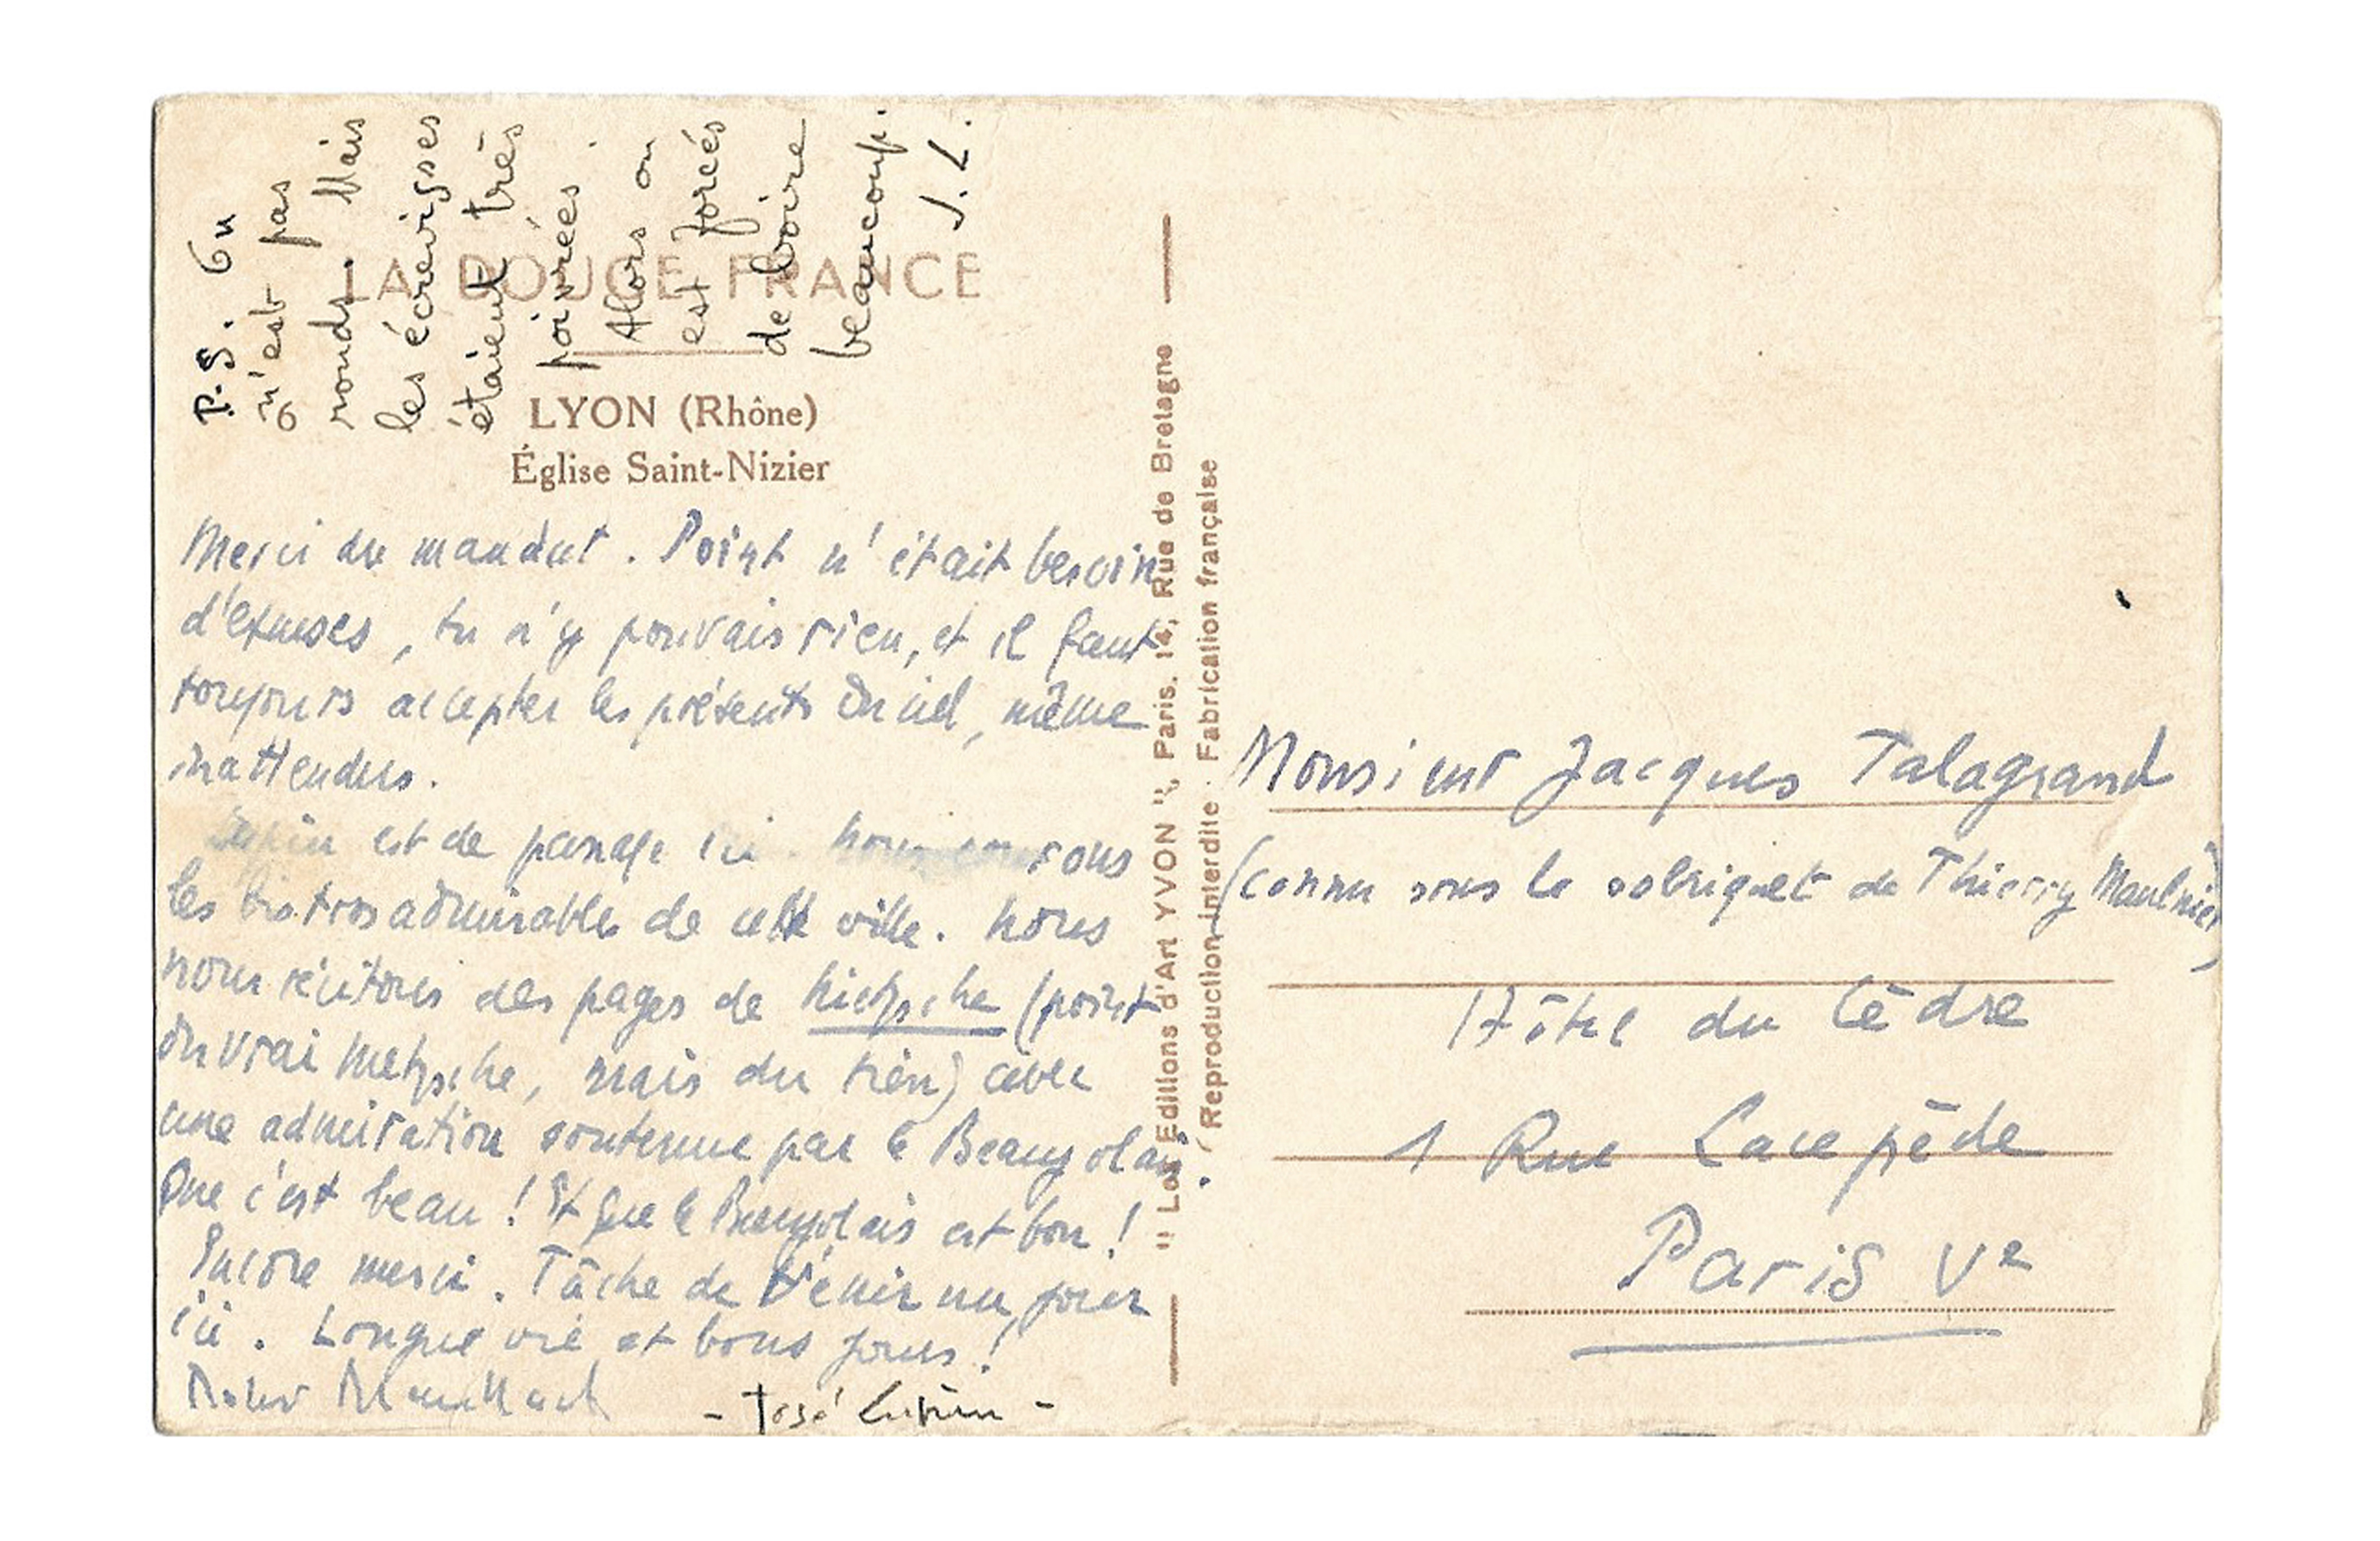 P.S. On
n'est pas
ronds. Mais
les écrevisses
étaient très
poivrées.
Alors on
est forcés
de boire
beaucoup.
J. L.
LA DOUCE FRANCE
LYON (Rhône)
Église Saint-Nizier
Merci du mandat. Point n'était besoin
d'excuses, tu n'y pouvais rien, et il faut
toujours accepter les présents du ciel, même
inattendus.
Lupin est de passage ici. Nous courons
les bistros admirables de cette ville. Nous
nous récitons des pages de Nietzsche (point
du vrai Nietzsche, mais du tien) avec
une admiration soutenue par le Beaujolais.
Que c'est beau ! Et que le Beaujolais est bon !
Encore merci. Tâche de venir un jour
ici. Longue vie et bons jours !
- José Lupin -
" Les Editions d'Art YVON ", Paris, 14, Rue de Bretagne
Reproduction interdite. Fabrication française
Monsieur Jacques Talagrand
(connu sous le sobriquet de Thierry Maulnier)
Hôtel du Cèdre
1 Rue Lacepède
Paris Ve